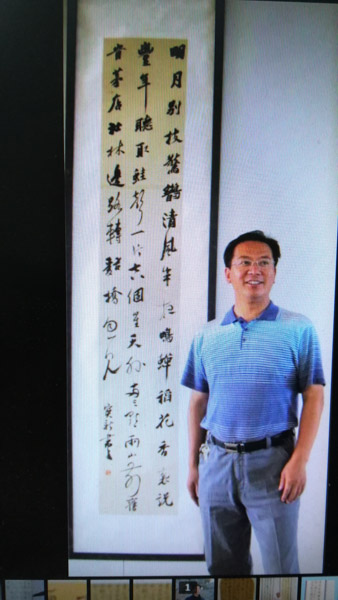 明月别枝驚鵲清風半夜鳴蟬稻花香裏説
豐年聽取蛙聲一片七八個星天外两三點雨山前舊
旹茅店社林邊路轉谿橋忽見
1